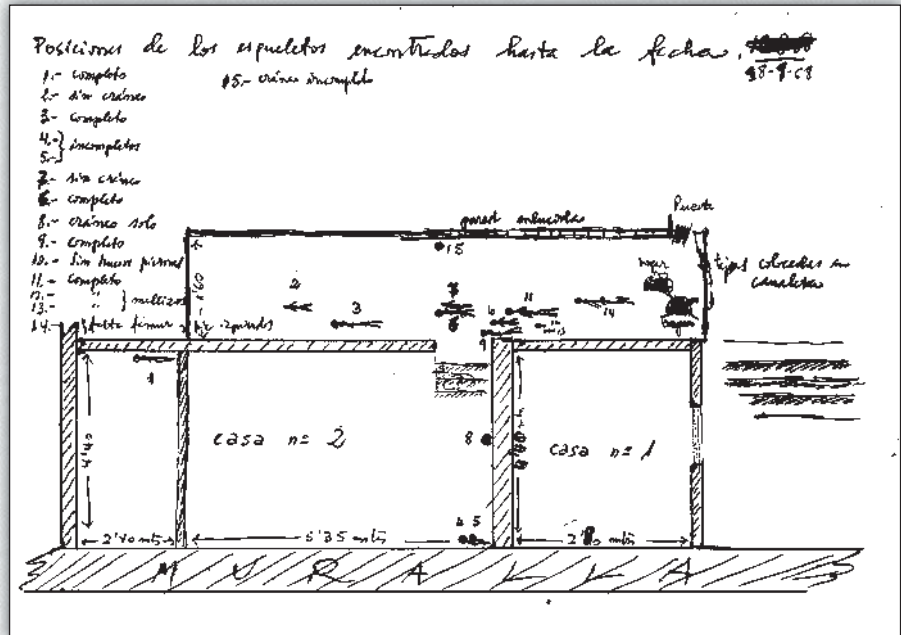 Posiciones de los esqueletos encontrados hasta la fecha.
28-9-68
1.- completo
2.- sin cráneo
3.- completo
4.-} incompletos
5.-}
7.- sin cráneo
6.- completo
8.- cráneo solo
9.- completo
10.- sin huesos piernas
11.- completo
12.- " } mellizos
13.- "
14.- falta fémur y pie izquierdos
15.- cráneo incompleto
pared enlucida
Puerta
15
hogar
tejas colocadas en canaleta
1'60
2
3
7
6
11
14
9
1
4'40
casa nº 2
8
4'40 mts
casa nº 1
2'40 mts
5'35 mts
4 5
mts
MURALLA